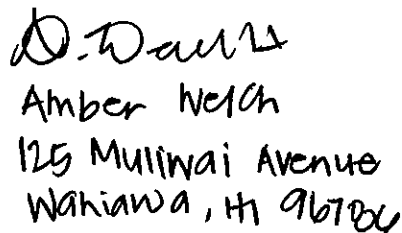 Amber Welch
125 Muliwai Avenue
Wahiawa, HI 96786